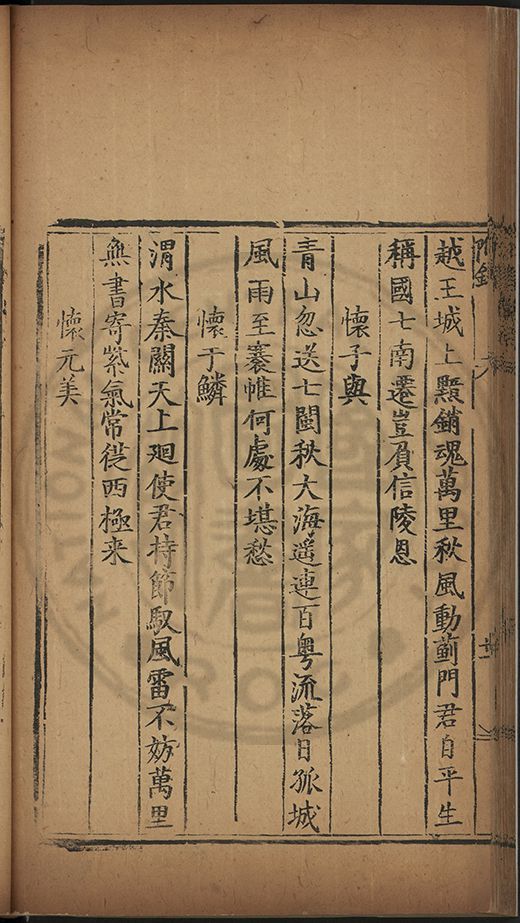 越王城上黯銷魂萬里秋風動薊門君自平生
稱國士南遷豈負信陵恩
懷子與
青山忽送七閩秋大海遥連百粤流落日孤城
風雨至褰帷何處不堪愁
懷于鱗
渭水秦關天上廻使君持節馭風雷不妨萬里
無書寄紫氣常從西極来
懷元美